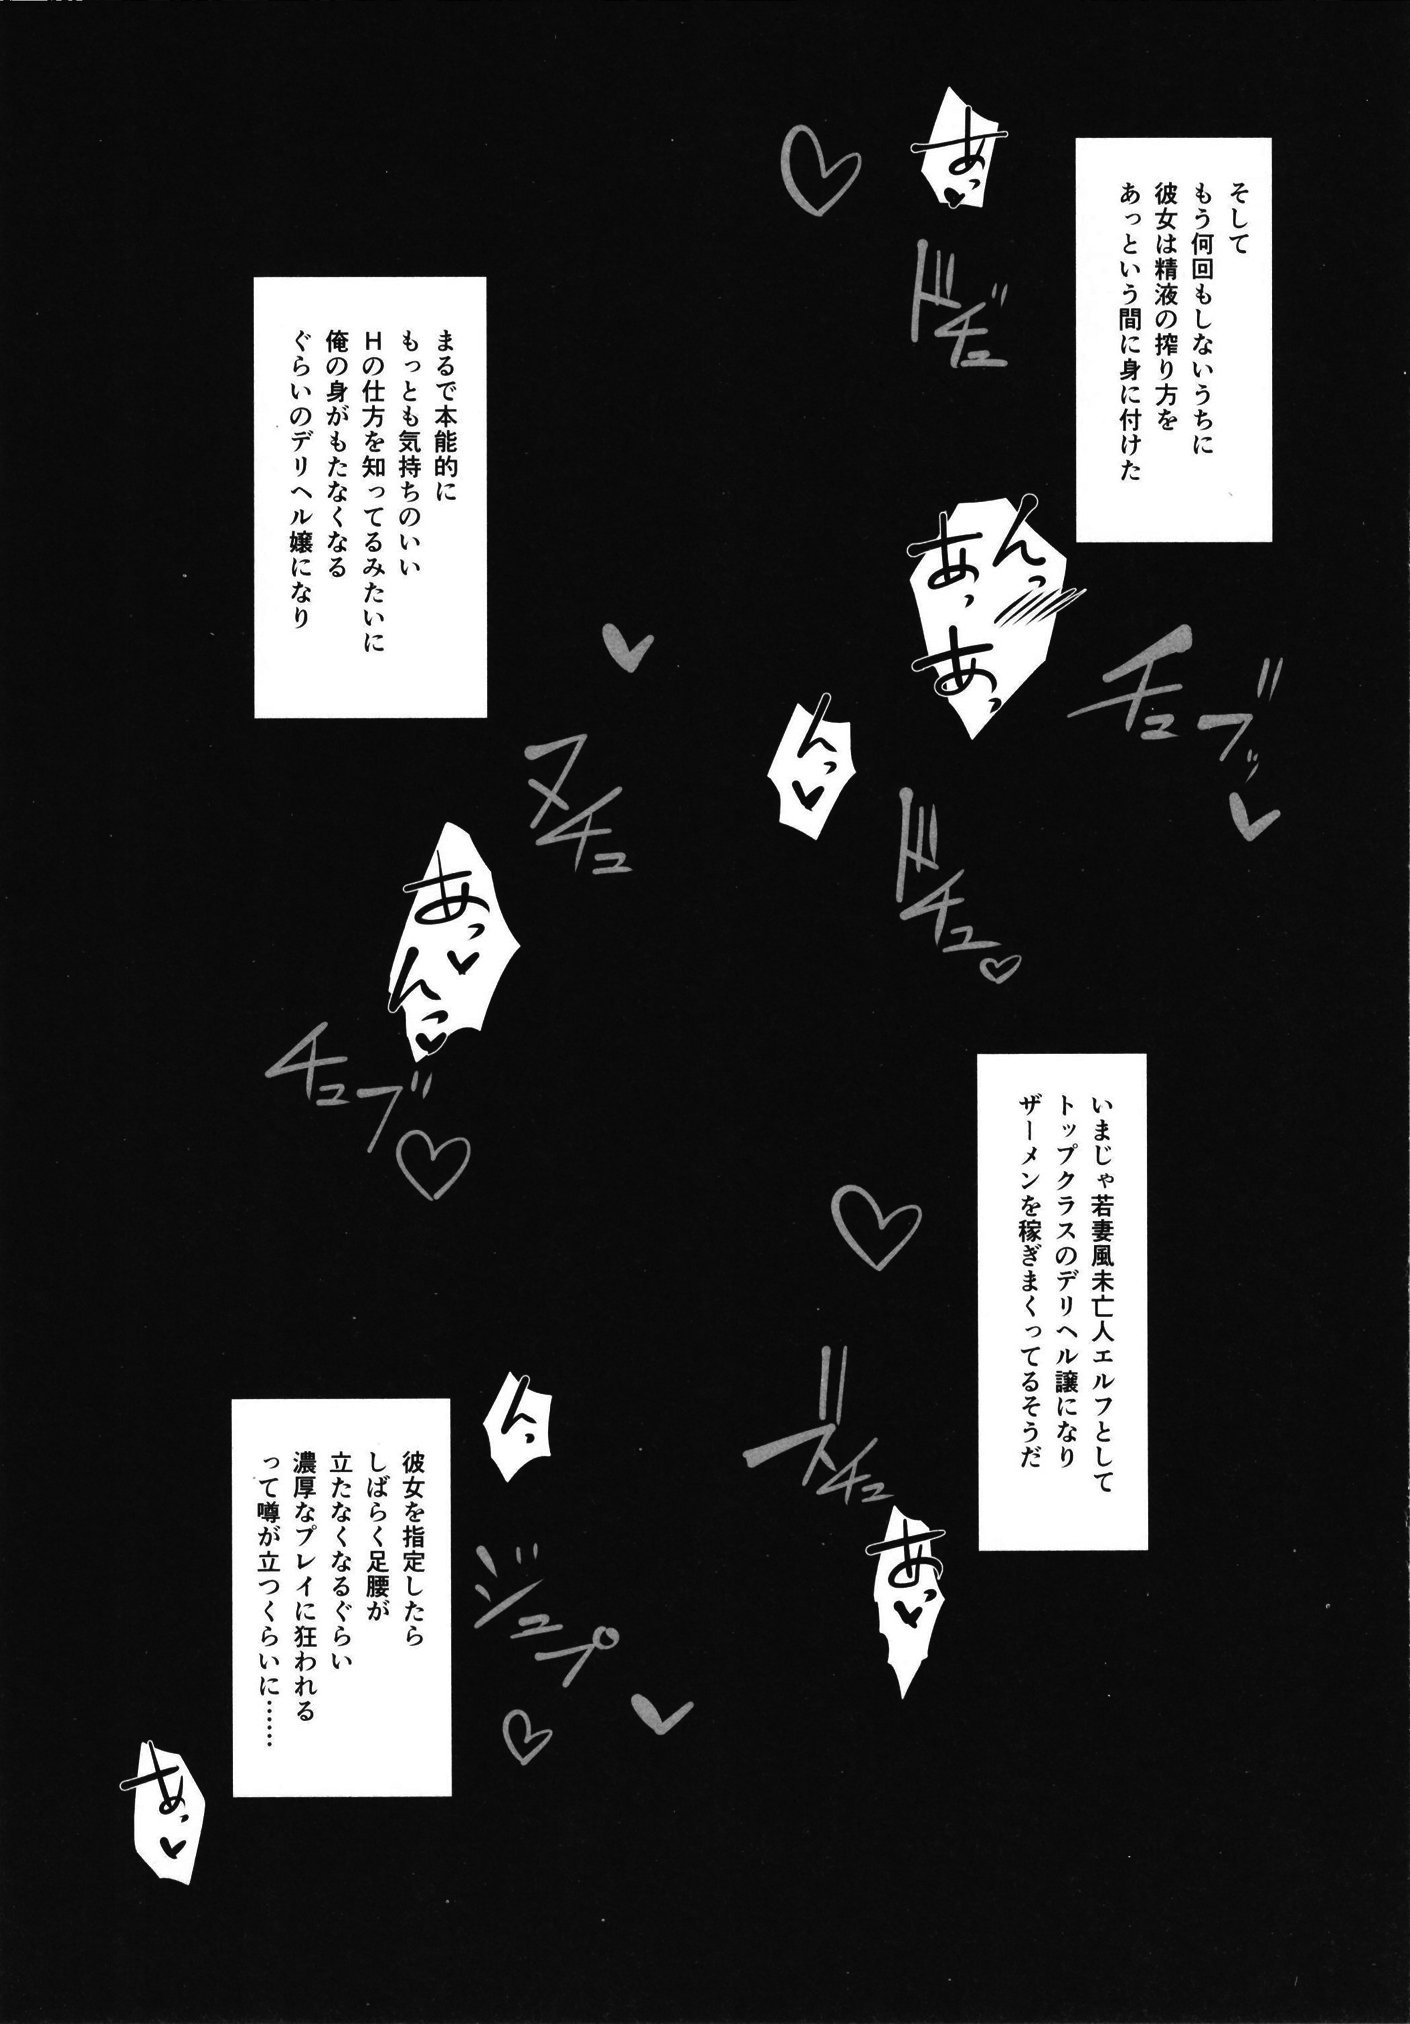 そして
もう何回もしないうちに
彼女は精液の搾り方を
あっという間に身に付けた
あっ♥
ドチュ
んっ
あっ
あっ
チュブッ♥
んっ♥
ドチュ♡
まるで本能的に
もっとも気持ちのいい
Hの仕方を知ってるみたいに
俺の身がもたなくなる
ぐらいのデリヘル嬢になり
ヌチュ
あっ♥
んっ♥
チュブ♡
いまじゃ若妻風未亡人エルフとして
トップクラスのデリヘル譲になり
ザーメンを稼ぎまくってるそうだ
ズチュ
あっ♥
んっ
ジュプ♡
彼女を指定したら
しばらく足腰が
立たなくなるぐらい
濃厚なプレイに狂われる
って噂が立つくらいに……
あっ♥